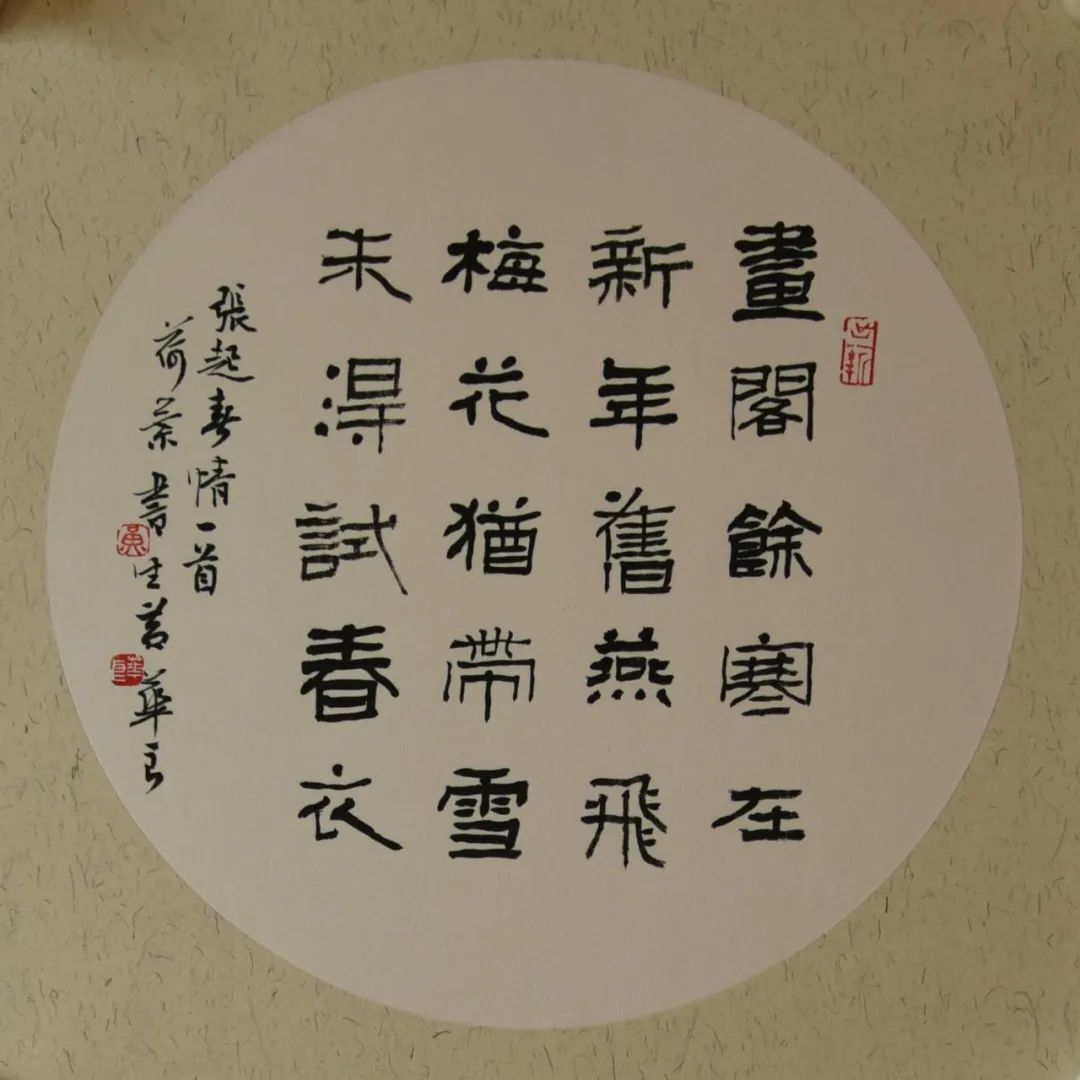 畫閣餘寒在
新年舊燕飛
梅花猶帶雪
未得試春衣
張起春情一首
荷葉書生黃華
黃